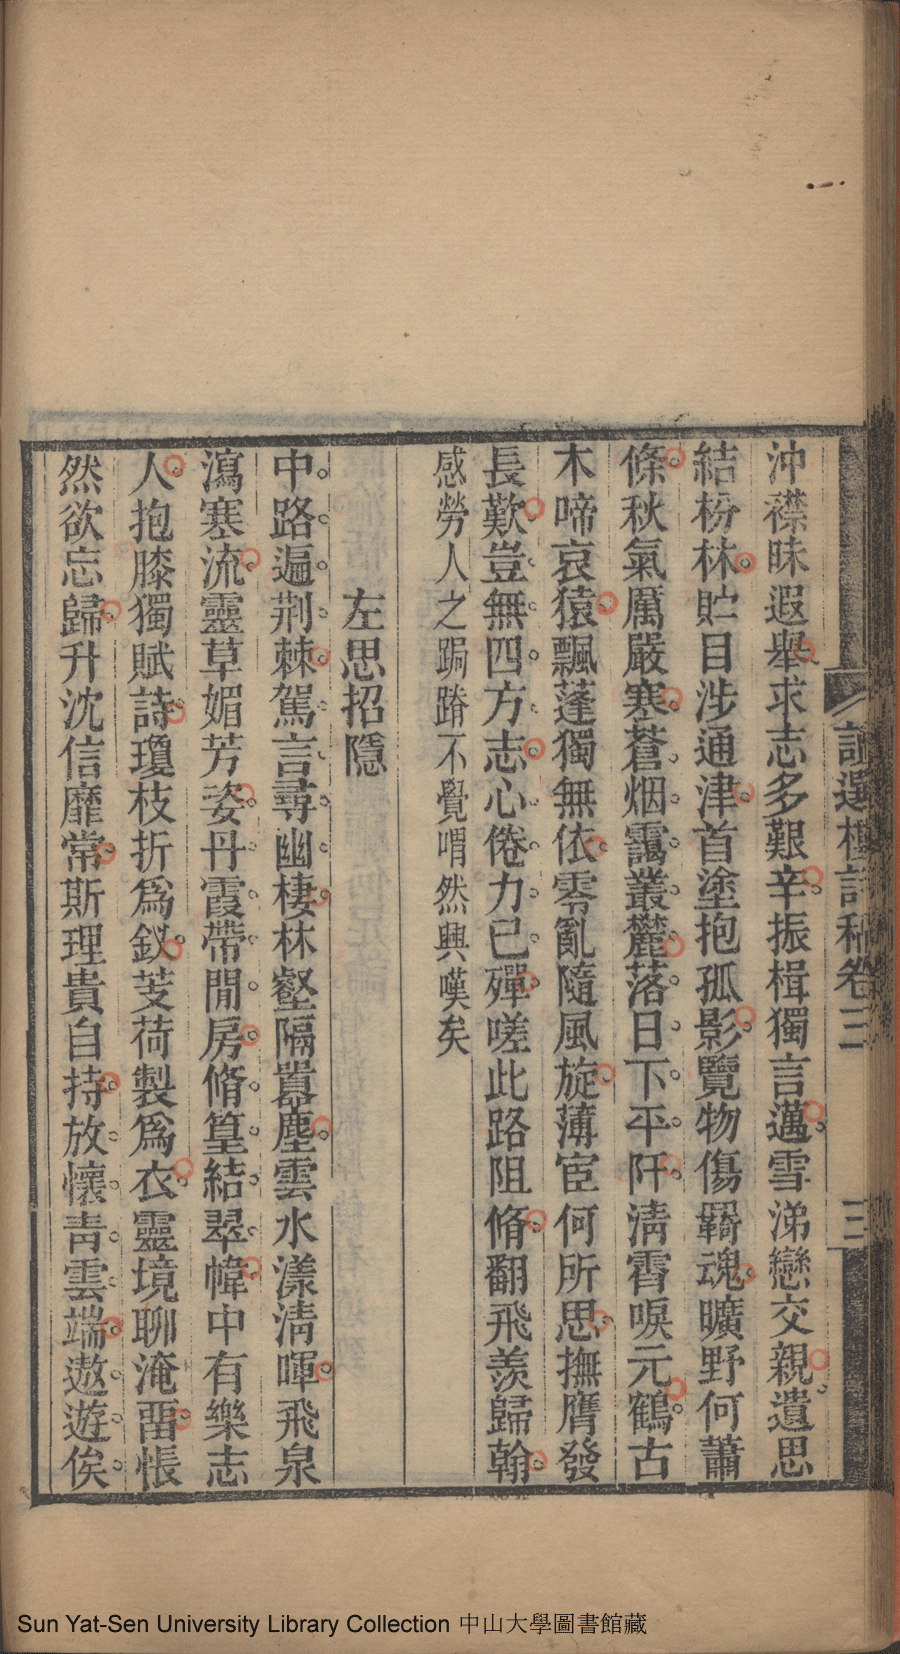 沖襟昧遐舉求志多艱辛振楫獨言邁雪涕戀交親遺思
結枌林貯目涉通津首塗抱孤影覽物傷羇魂曠野何蕭
條秋氣厲嚴塞蒼烟靄叢麓落日下平阡清霄唳元鶴古
木啼哀猿飄蓬獨無依零亂隨風旋薄宦何所思撫膺發
長歎豈無四方志心倦力已殫嗟此路阻脩翻飛羨歸翰
感勞人之跼蹐不覺喟然興嘆矣
左思招隱
中路遍荆棘駕言尋幽棲林壑隔囂塵雲水漾清暉飛泉
瀉塞流靈草媚芳姿丹霞帶閒房脩篁結翠幃中有樂志
人抱膝獨賦詩瓊枝折爲釵芰荷製爲衣靈境聊淹畱悵
然欲忘歸升沈信靡常斯理貴自持放懷靑雲端遨遊俟
選樓詩稿卷三
三
Sun Yat-Sen University Library Collection 中山大學圖書館藏